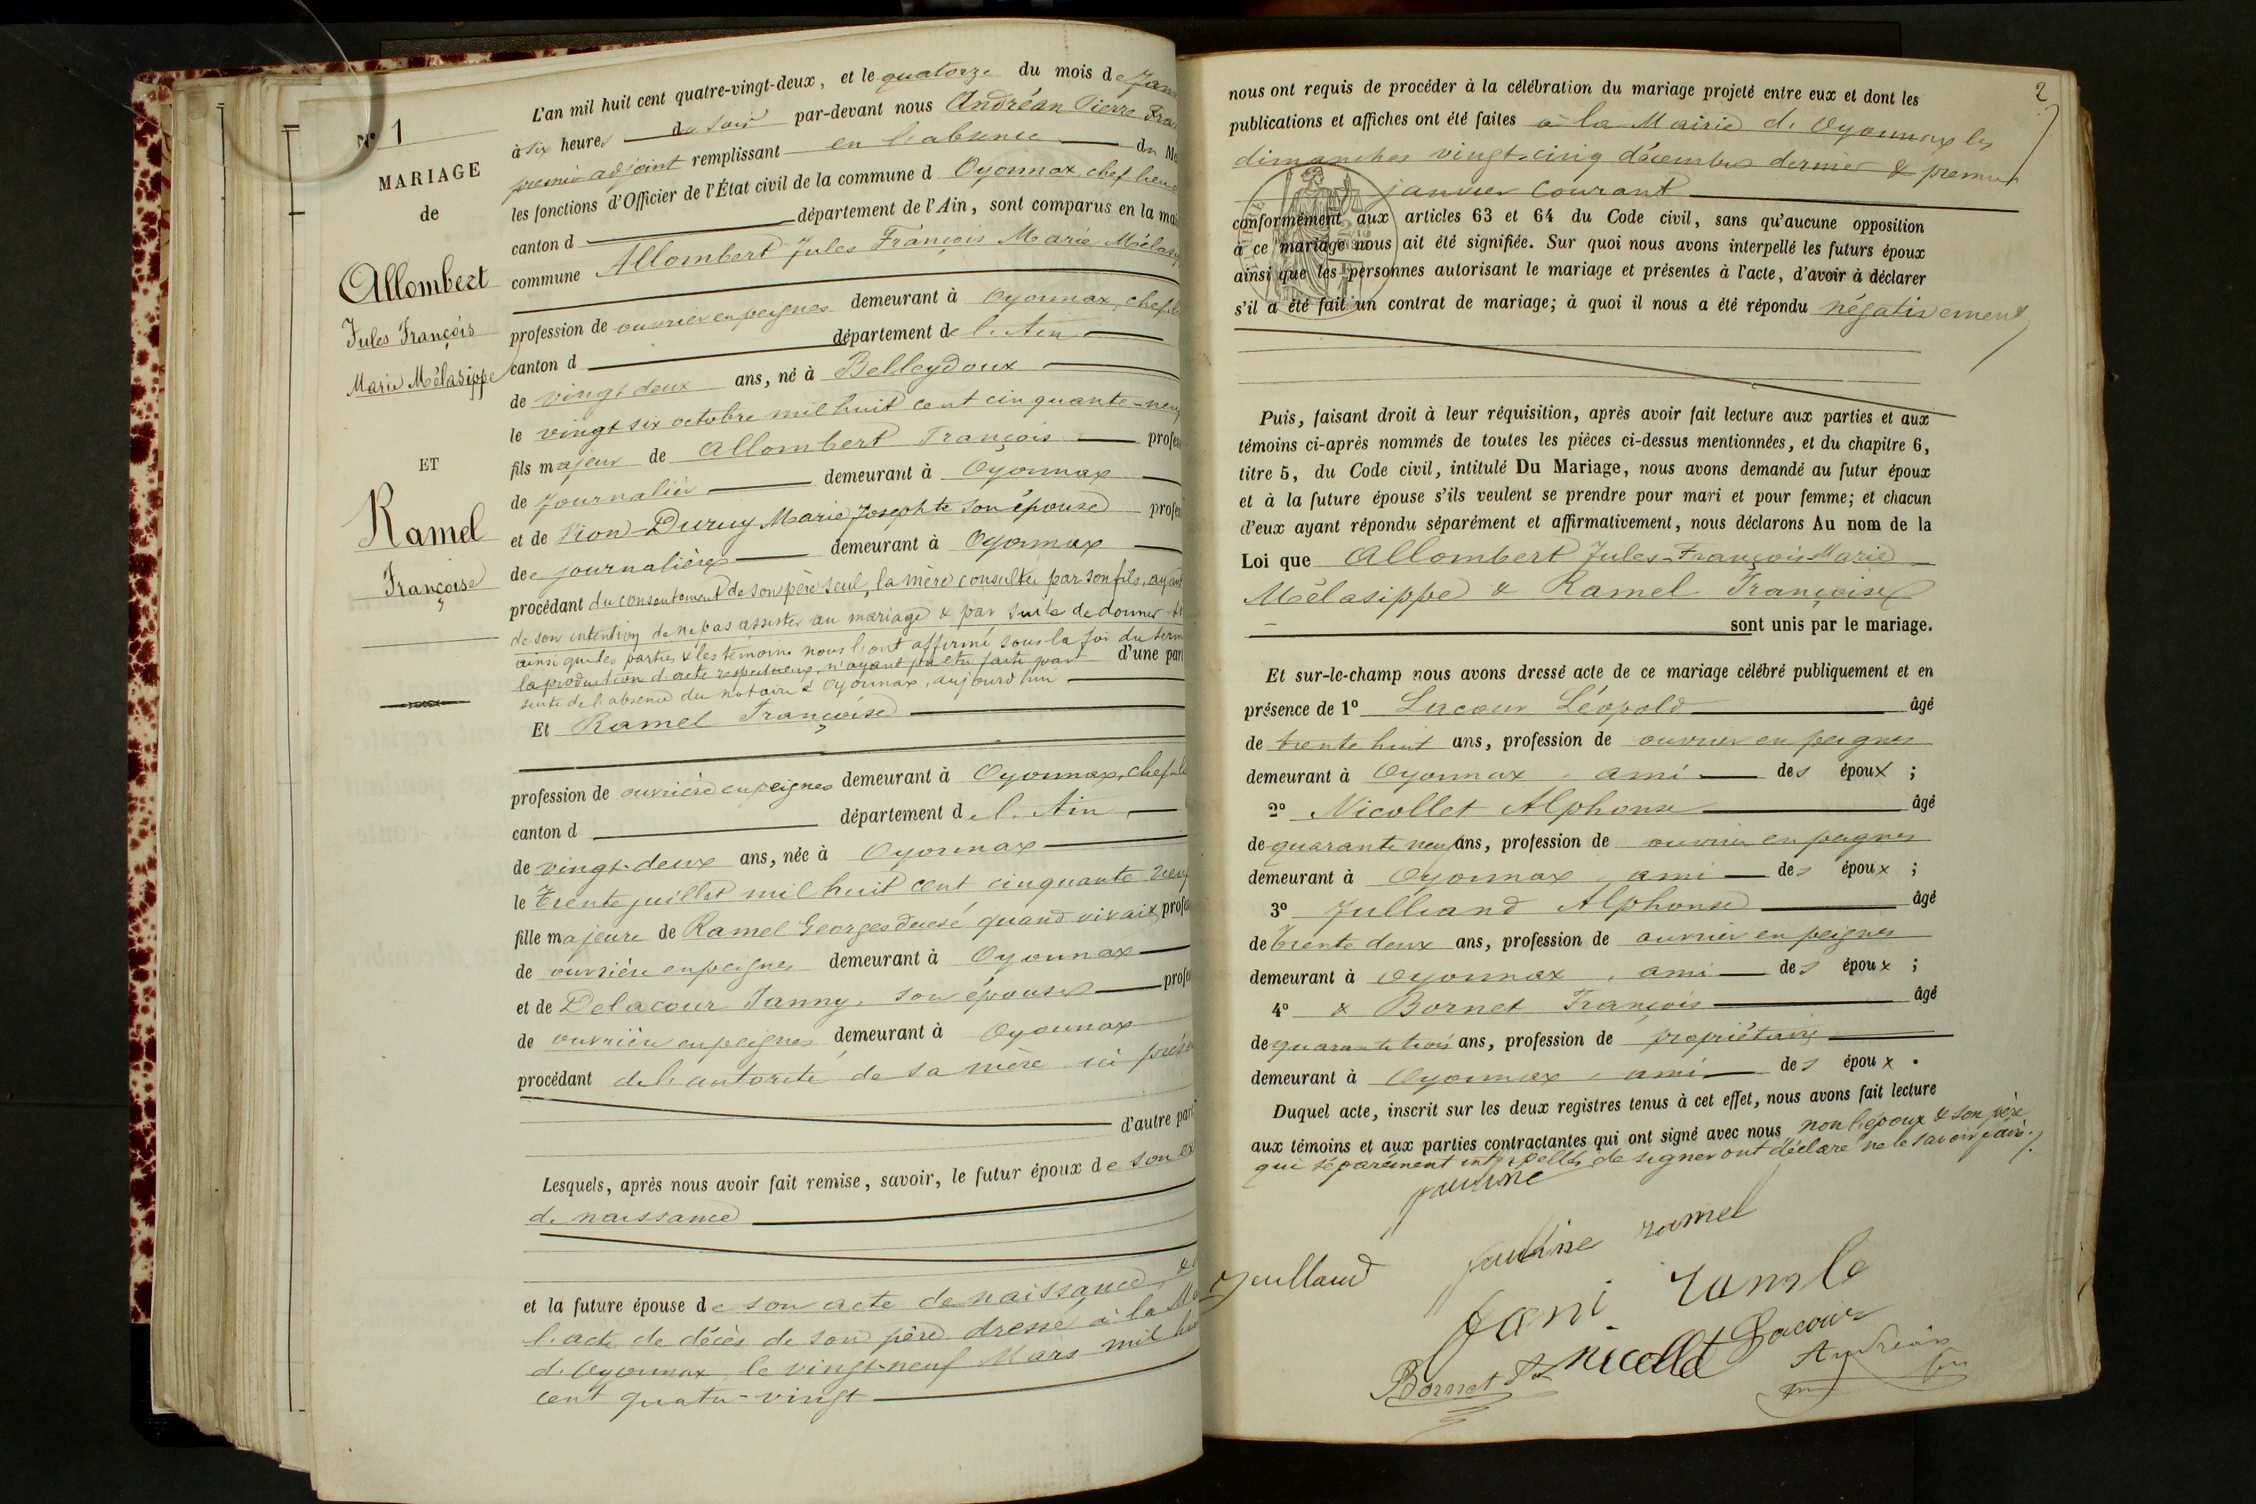 N° 1
MARIAGE
de
Allombert
Jules François
Marie Mélasippe
ET
Ramel
Françoise
L'an mil huit cent quatre-vingt-deux, et le quatorze du mois de Jan
à six heures du soir par-devant nous Andréan Pierre Fra
premier adjoint remplissant en l'absence du Ma
les fonctions d'Officier de l'État civil de la commune d Oyonnax, chef lieu d
canton d département de l'Ain, sont comparus en la mai
commune Allombert Jules François Marie Mélasip
profession de ouvrier en peignes demeurant à Oyonnax, chef li
canton d département de l'Ain
de vingt deux ans, né à Belleydoux
le vingt six octobre mil huit cent cinquante-neuf
fils majeur de Allombert François profes
de journalier demeurant à Oyonnax
et de Vion-Dury Marie Josephte son épouse profes
de journalière demeurant à Oyonnax
procédant du consentement de son père seul, la mère consultée par son fils, ayant
de son intention de ne pas assister au mariage & par suite de donner
ainsi que les parties & les témoins nous l'ont affirmé sous la foi du serm
la production d'acte respectueux n'ayant pu être faite par d'une par
suite de l'absence du notaire d'Oyonnax, aujourd'hui
Et Ramel Françoise
profession de ouvrière en peignes demeurant à Oyonnax, chef-li
canton d département de l'Ain
de vingt-deux ans, née à Oyonnax
le Trente juillet mil huit cent cinquante neuf
fille majeure de Ramel Georges décédé quand vivait, profes
de ouvrier en peignes demeurant à Oyonnax
et de Delacour Janny, son épouse profes
de ouvrière en peignes demeurant à Oyonnax
procédant de l'autorité de sa mère ici prés
d'autre part
Lesquels, après nous avoir fait remise, savoir, le futur époux de son
de naissance
et la future épouse de son acte de naissance &
l'acte de décès de son père dressé à la Ma
d'Oyonnax le vingt-neuf Mars mil hui
cent quatre-vingt
2
nous ont requis de procéder à la célébration du mariage projeté entre eux et dont les
publications et affiches ont été faites à la Mairie d'Oyonnax les
dimanches vingt-cinq décembre dernier & premier
janvier courant
conformément aux articles 63 et 64 du Code civil, sans qu'aucune opposition
à ce mariage nous ait été signifiée. Sur quoi nous avons interpellé les futurs époux
ainsi que les personnes autorisant le mariage et présentes à l'acte, d'avoir à déclarer
s'il a été fait un contrat de mariage; à quoi il nous a été répondu négativement
Puis, faisant droit à leur réquisition, après avoir fait lecture aux parties et aux
témoins ci-après nommés de toutes les pièces ci-dessus mentionnées, et du chapitre 6,
titre 5, du Code civil, intitulé Du Mariage, nous avons demandé au futur époux
et à la future épouse s'ils veulent se prendre pour mari et pour femme; et chacun
d'eux ayant répondu séparément et affirmativement, nous déclarons Au nom de la
Loi que Allombert Jules-François-Marie
Mélasippe & Ramel Françoise
sont unis par le mariage.
Et sur-le-champ nous avons dressé acte de ce mariage célébré publiquement et en
présence de 1° Lacour Léopold âgé
de trente huit ans, profession de ouvrier en peignes
demeurant à Oyonnax, ami des époux ;
2° Nicollet Alphonse âgé
de quarante neuf ans, profession de ouvrier en peignes
demeurant à Oyonnax, ami des époux ;
3° Julliand Alphonse âgé
de trente deux ans, profession de ouvrier en peignes
demeurant à Oyonnax, ami des époux ;
4° & Bornet François âgé
de quarante trois ans, profession de propriétaire
demeurant à Oyonnax, ami des époux .
Duquel acte, inscrit sur les deux registres tenus à cet effet, nous avons fait lecture
aux témoins et aux parties contractantes qui ont signé avec nous non l'époux & son père
qui séparément interpellés de signer ont déclaré ne le savoir faire.
pauline
pauline ramel
Juilland
fani ramle
nicollet Lacour
Bornet
Andréan